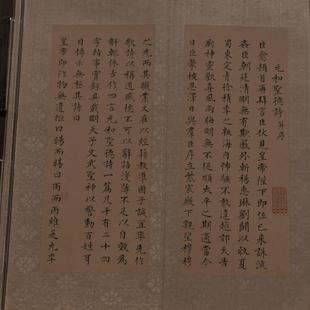 元和聖德詩并序
臣愈頓首再拜言臣伏見皇帝陛下即位已來誅流
姦臣朝廷清明無有欺蔽外斬楊惠琳劉闢以收夏
蜀東定青徐積年之叛海內怖駭不敢違越郊天告
廟神靈歡喜風雨晦明無不從順太平之期適當今
日臣蒙被恩澤日與羣臣序立紫宸殿下親望穆穆
之光而其職業又在以經籍教導國子誠宜率先作
歌詩以稱道盛德不可以辭語淺薄不足以自效為
解輒依古作四言元和聖德詩一篇凡千有二十四
字指事實錄具載明天子文武聖神以警動百姓耳
目傳示無極其詩曰
皇帝即阼物無違拒曰暘而暘曰雨而雨維是元年